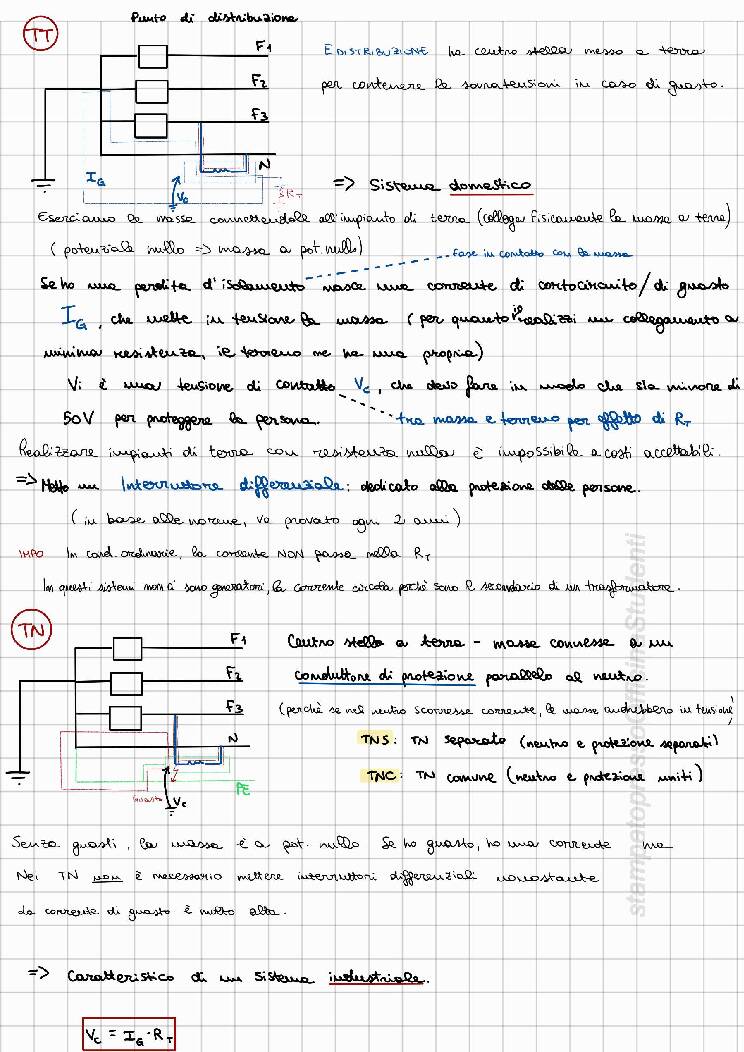 TT
Punto di distribuzione
F1
F2
F3
N
IG
Vc
RT
E DISTRIBUZIONE ha centro stella messo a terra
per contenere le sovratensioni in caso di guasto.
=> Sistema domestico
Eserciamo le masse connettendole all'impianto di terra (collega fisicamente le masse a terra)
(potenziale nullo => massa a pot. nullo)
fase in contatto con la massa
Se ho una perdita d'isolamento nasce una corrente di cortocircuito/di guasto
IG, che mette in tensione la massa (per quanto io realizzi un collegamento a
minima resistenza, il terreno ne ha una propria)
Vi è una tensione di contatto Vc, che devo fare in modo che sia minore di
50V per proteggere la persona.
tra massa e terreno per effetto di RT
Realizzare impianti di terra con resistenza nulla è impossibile a costi accettabili.
=> Metto un Interruttore differenziale: dedicato alla protezione delle persone.
(in base alle norme, va provato ogni 2 anni)
IMPO In cond. ordinarie, la corrente NON passa nella RT
In questi sistemi non ci sono generatori, la corrente circola perchè sono il secondario di un trasformatore.
TN
F1
F2
F3
N
PE
Guasto
Vc
Centro stella a terra - masse connesse a un
conduttore di protezione parallelo al neutro.
(perchè se nel neutro scorresse corrente, le masse andrebbero in tensione)
TNS: TN separato (neutro e protezione separati)
TNC: TN comune (neutro e protezione uniti)
Senza guasti, la massa è a pot. nullo Se ho guasto, ho una corrente ma
Nei TN non è necessario mettere interruttori differenziali nonostante
la corrente di guasto è molto alta.
=> Caratteristico di un sistema industriale.
Vc = IG · RT
stampatopressoOfficinaStudenti